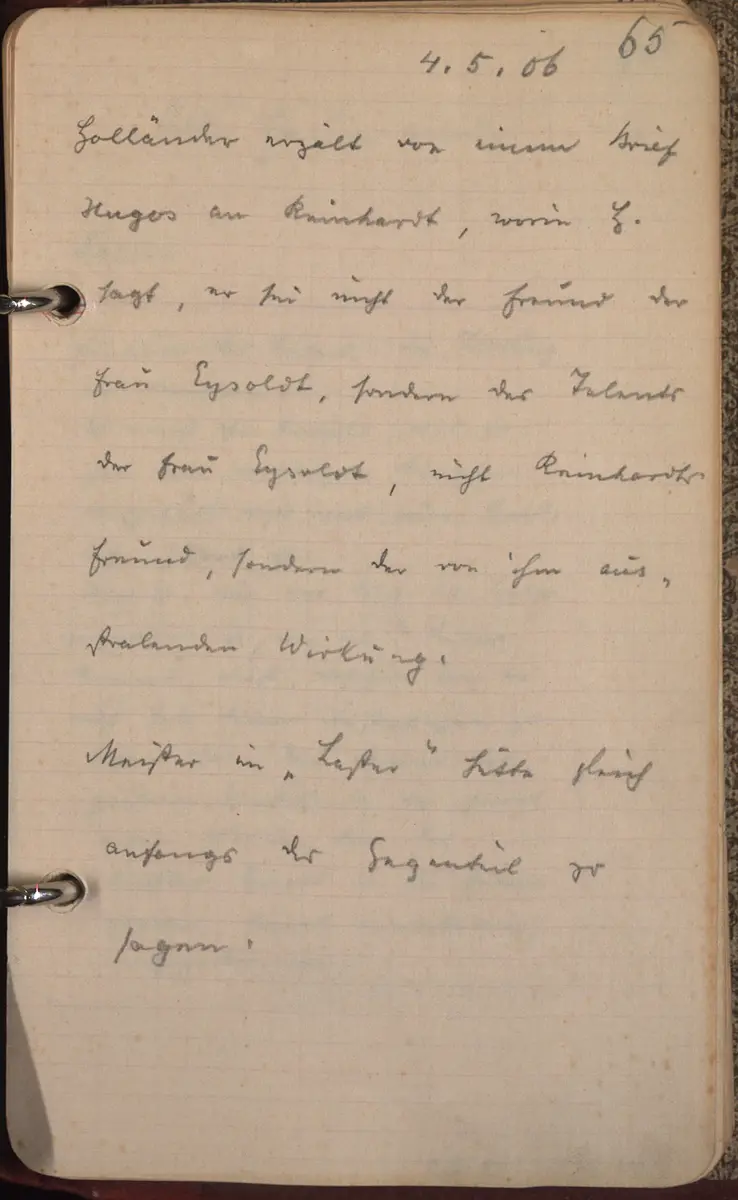 65
4. 5. 06
Holländer erzält von einem Brief
Hugos an Reinhardt, worin H.
sagt, er sei nicht der Freund der
Frau Eysoldt, sondern des Talents
der Frau Eysoldt, nicht Reinhardts
Freund, sondern der von ihm aus-
stralenden Wirkung.
Meister im „Laster" hätte gleich
anfangs das Gegenteil zu
sagen.